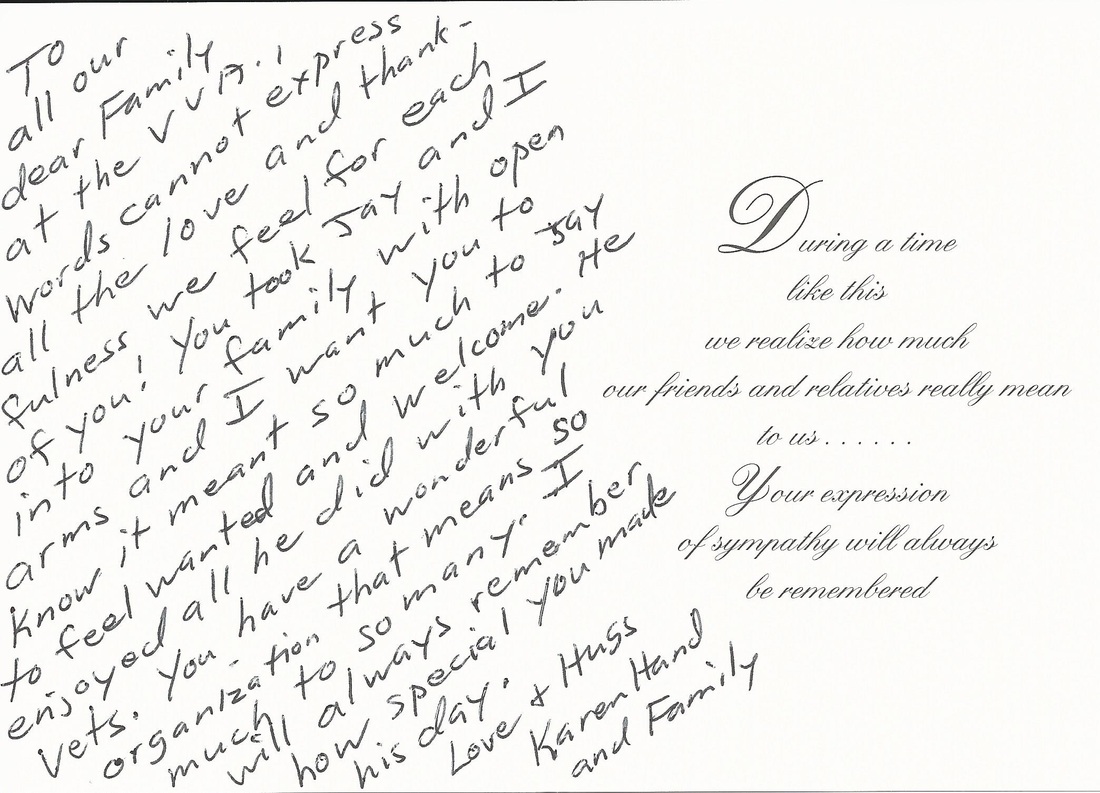 To
all our
dear Family
at the VVA!
Words cannot express
all the love and thank-
fulness we feel for each
of you! You took Jay and I
into your family with open
arms and I want you to
know it meant so much to Jay
to feel wanted and welcome. He
enjoyed all he did with you
vets. You have a wonderful
organiza-tion that means so
much to so many. I
will always remember
how special you made
his day.
Love + Hugs
Karen Hand
and Family
During a time
like this
we realize how much
our friends and relatives really mean
to us . . . . . .
Your expression
of sympathy will always
be remembered